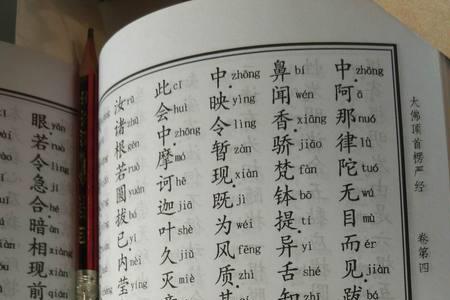 大佛顶首楞严经 卷第四
中 zhōng 阿 ā 那 nuó 律 lǜ 陀 tuó 无 wú 目 mù 而 ér 见 jiàn. 跋 bá
鼻 bí 闻 wén 香 xiāng. 骄 jiāo 梵 fàn 钵 bō 提 tí. 异 yì 舌 shé 知 zhī
中 zhōng. 映 yìng 令 lìng 暂 zàn 现 xiàn. 既 jì 为 wéi 风 fēng 质 zhì. 其 qí
此 cǐ 会 huì 中 zhōng 摩 mó 诃 hē 迦 jiā 叶 shè 久 jiǔ 灭 miè
汝 rǔ 诸 zhū 根 gēn 若 ruò 圆 yuán 拔 bá 已 yǐ. 内 nèi 莹 yíng
眼 yǎn 若 ruò 令 lìng 急 jí 合 hé 暗 àn 相 xiàng 现 xiàn 前 qián